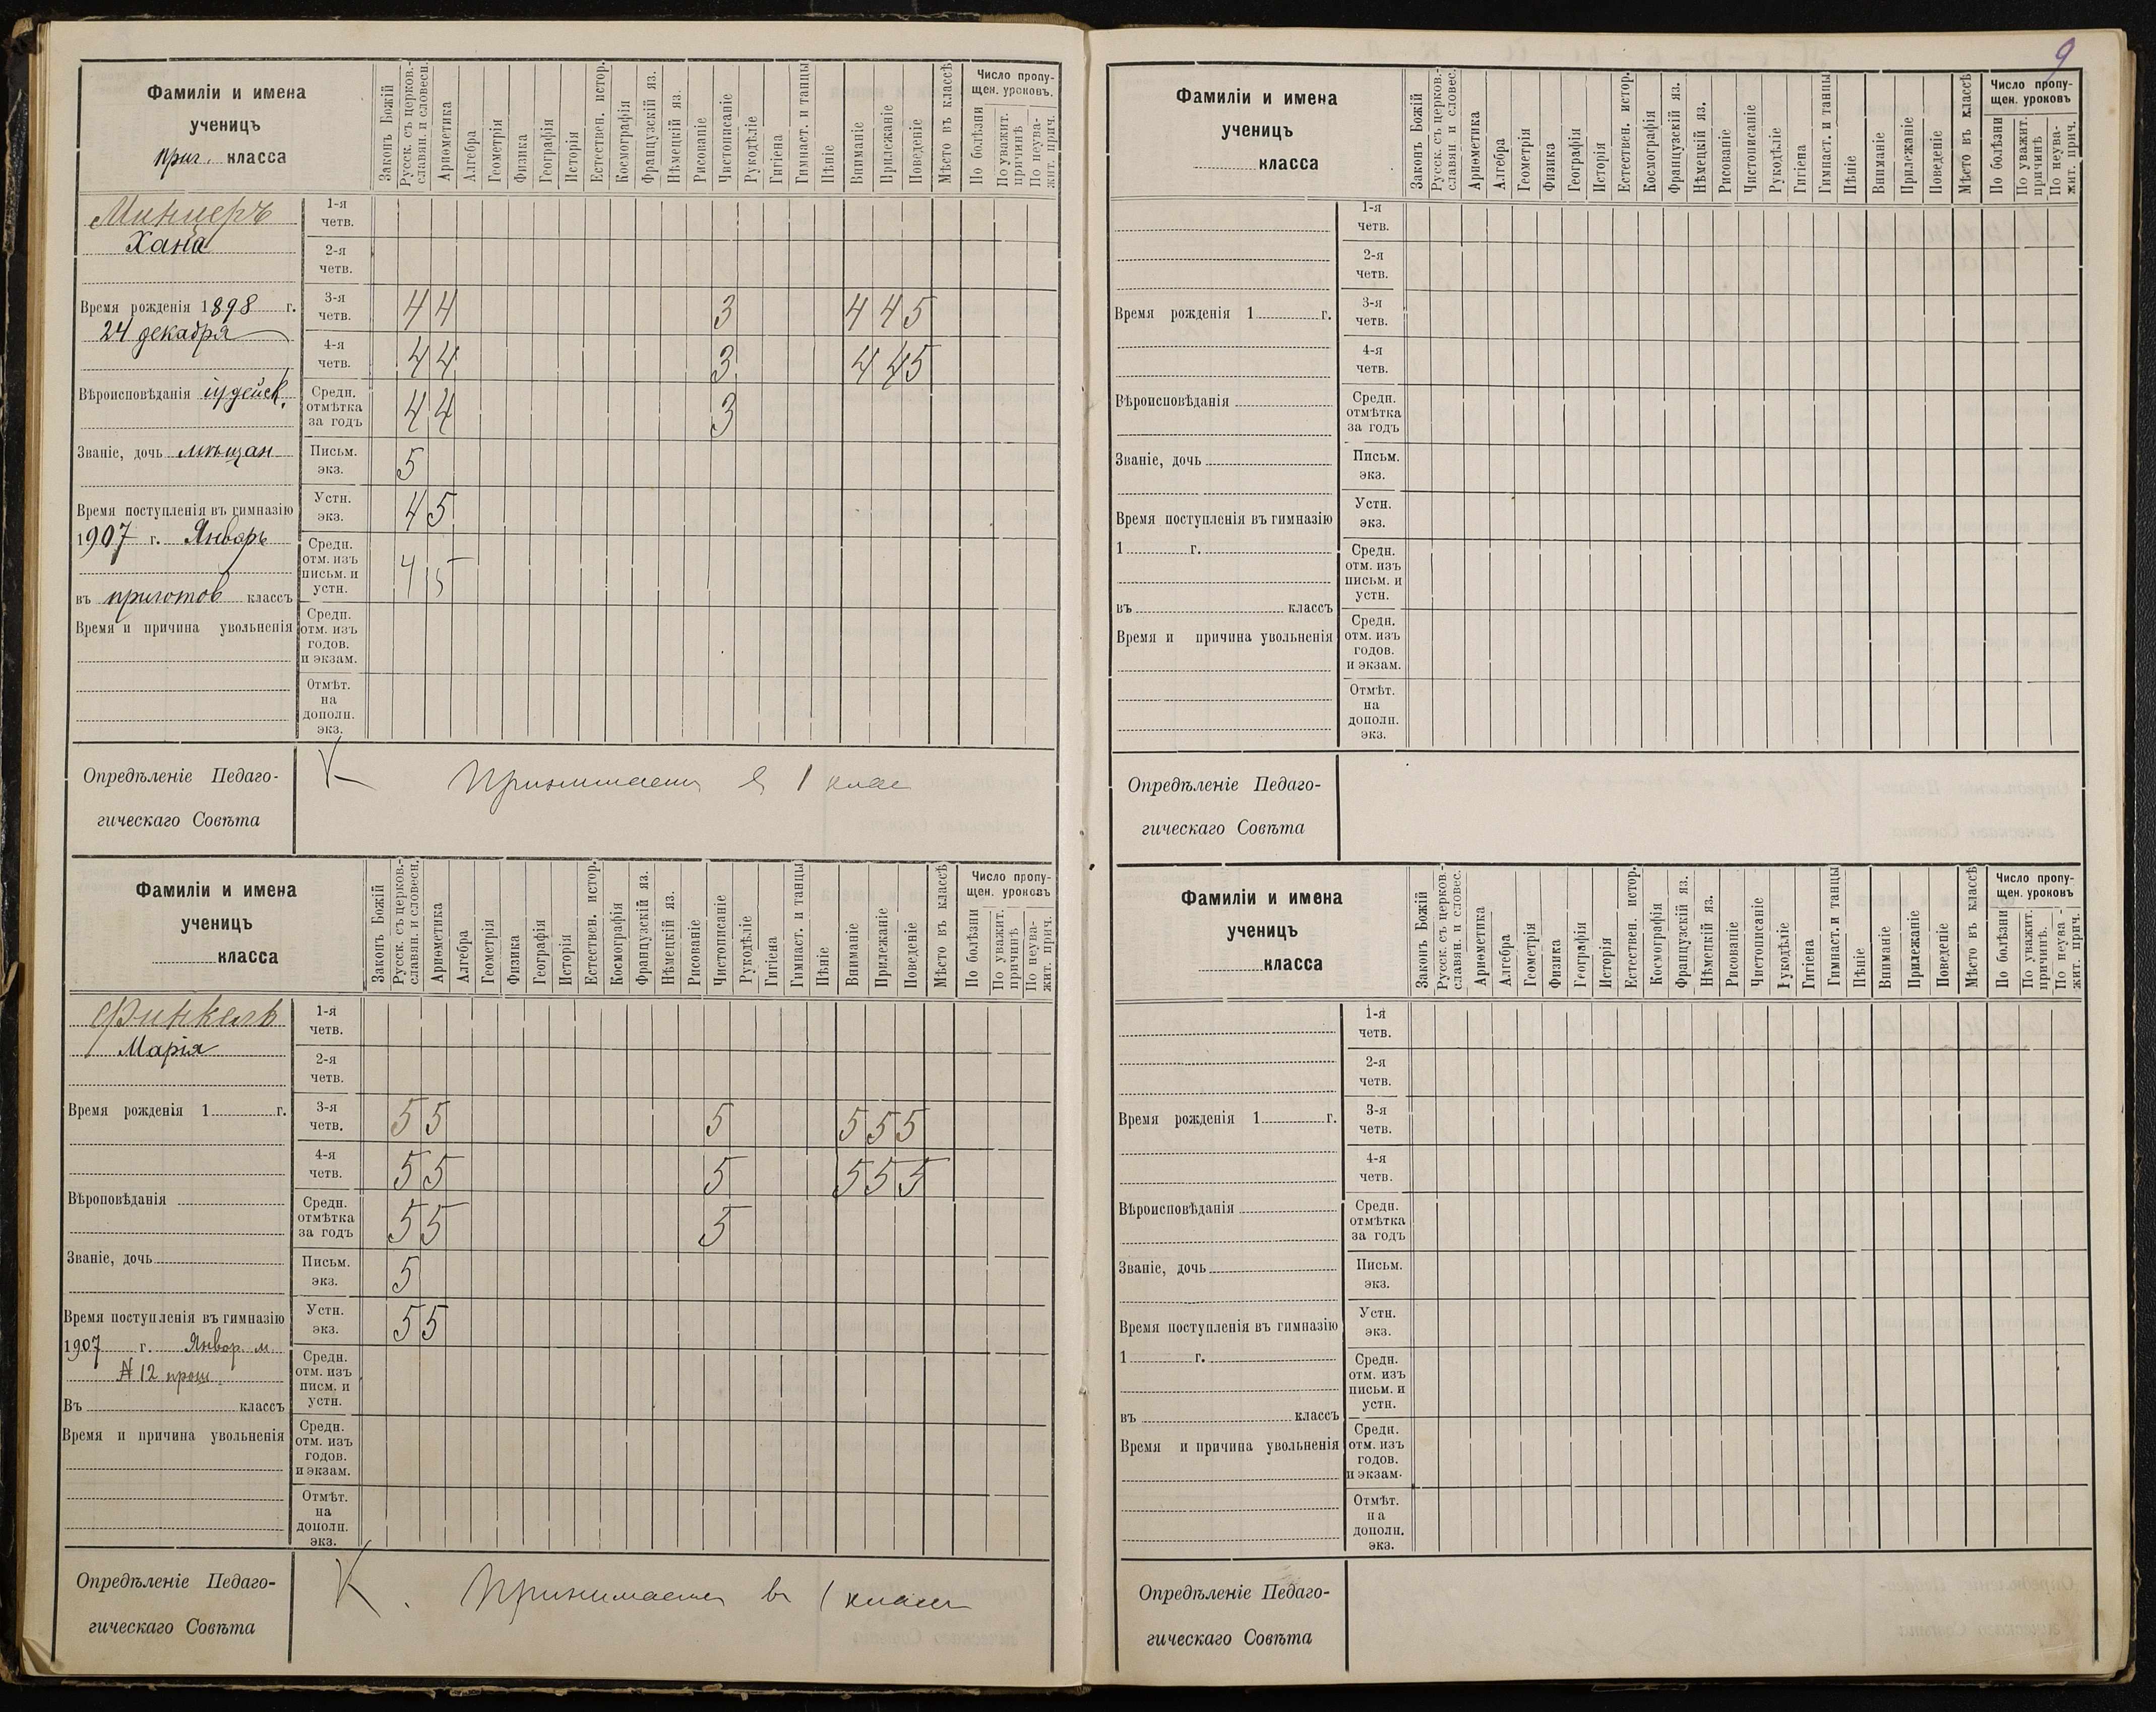 9
Фамиліи и имена
ученицъ
приг. класса
Законъ Божій
Русск. съ церков.-
славян. и словесн.
Ариѳметика
Алгебра
Геометрія
Физика
Географія
Исторія
Естествен. истор.
Космографія
Французскій яз.
Нѣмецкій яз.
Рисованіе
Чистописаніе
Рукодѣліе
Гигіена
Гимнаст. и танцы
Пѣніе
Вниманіе
Прилежаніе
Поведеніе
Мѣсто въ классѣ
Число пропу-
щен. уроковъ.
По болѣзни
По уважит.
причинѣ
По неува-
жит. прич.
Минцеръ
Хана
Время рожденія 1898 г.
24 декабря
Вѣроисповѣданія іудейск.
Званіе, дочь мѣщан
Время поступленія въ гимназію
1907 г. Январь
въ приготов классъ
Время и причина увольненія
1-я
четв.
2-я
четв.
3-я
четв. 4 4 3 4 4 5
4-я
четв. 4 4 3 4 4 5
Средн.
отмѣтка
за годъ 4 4 3
Письм.
экз. 5
Устн.
экз. 4 5
Средн.
отм. изъ
письм. и
устн. 4 5
Средн.
отм. изъ
годов.
и экзам.
Отмѣт.
на
дополн.
экз.
Опредѣленіе Педаго-
гическаго Совѣта
Принимается в 1 клас
Фамиліи и имена
ученицъ
класса
Законъ Божій
Русск. съ церков.-
славян. и словесн.
Ариѳметика
Алгебра
Геометрія
Физика
Географія
Исторія
Естествен. истор.
Космографія
Французскій яз.
Нѣмецкій яз.
Рисованіе
Чистописаніе
Рукодѣліе
Гигіена
Гимнаст. и танцы
Пѣніе
Вниманіе
Прилежаніе
Поведеніе
Мѣсто въ классѣ
Число пропу-
щен. уроковъ
По болѣзни
По уважит.
причинѣ
По неува-
жит. прич.
Финкель
Марія
Время рожденія 1 г.
Вѣроповѣданія
Званіе, дочь
Время поступленія въ гимназію
1907 г. Январ. м.
№ 12 прош
Въ классъ
Время и причина увольненія
1-я
четв.
2-я
четв.
3-я
четв. 5 5 5 5 5 5
4-я
четв. 5 5 5 5 5 5
Средн.
отмѣтка
за годъ 5 5 5
Письм.
экз. 5
Устн.
экз. 5 5
Средн.
отм. изъ
писм. и
устн.
Средн.
отм. изъ
годов.
и экзам.
Отмѣт.
на
дополн.
экз.
Опредѣленіе Педаго-
гическаго Совѣта
Принимается в 1 класс
Фамиліи и имена
ученицъ
класса
Законъ Божій
Русск. съ церков.-
славян и словес.
Ариѳметика
Алгебра
Геометрія
Физика
Географія
Исторія
Естествен. истор.
Космографія
Французскій яз.
Нѣмецкій яз.
Рисованіе
Чистописаніе
Рукодѣліе
Гигіена
Гимнаст. и танцы
Пѣніе
Вниманіе
Прилежаніе
Поведеніе
Мѣсто въ классѣ
Число пропу-
щен. уроковъ
По болѣзни
По уважит.
причинѣ
По неува-
жит. прич.
Время рожденія 1 г.
Вѣроисповѣданія
Званіе, дочь
Время поступленія въ гимназію
1 г.
въ классъ
Время и причина увольненія
1-я
четв.
2-я
четв.
3-я
четв.
4-я
четв.
Средн.
отмѣтка
за годъ
Письм.
экз.
Устн.
экз.
Средн.
отм. изъ
письм. и
устн.
Средн.
отм. изъ
годов.
и экзам.
Отмѣт.
на
дополн.
экз.
Опредѣленіе Педаго-
гическаго Совѣта
Фамиліи и имена
ученицъ
класса
Законъ Божій
Русск. съ церков.-
славян. и словес.
Ариѳметика
Алгебра
Геометрія
Физика
Географія
Исторія
Естествен. истор.
Космографія
Французскій яз.
Нѣмецкій яз.
Рисованіе
Чистописаніе
Рукодѣліе
Гигіена
Гимнаст. и танцы
Пѣніе
Вниманіе
Прилежаніе
Поведеніе
Мѣсто въ классѣ
Число пропу-
щен. уроковъ
По болѣзни
По уважит.
причинѣ.
По неува-
жит. прич.
Время рожденія 1 г.
Вѣроисповѣданія
Званіе, дочь
Время поступленія въ гимназію
1 г.
въ классъ
Время и причина увольненія
1-я
четв.
2-я
четв.
3-я
четв.
4-я
четв.
Средн.
отмѣтка
за годъ
Письм.
экз.
Устн.
экз.
Средн.
отм. изъ
письм. и
устн.
Средн.
отм. изъ
годов.
и экзам.
Отмѣт.
на
дополн.
экз.
Опредѣленіе Педаго-
гическаго Совѣта